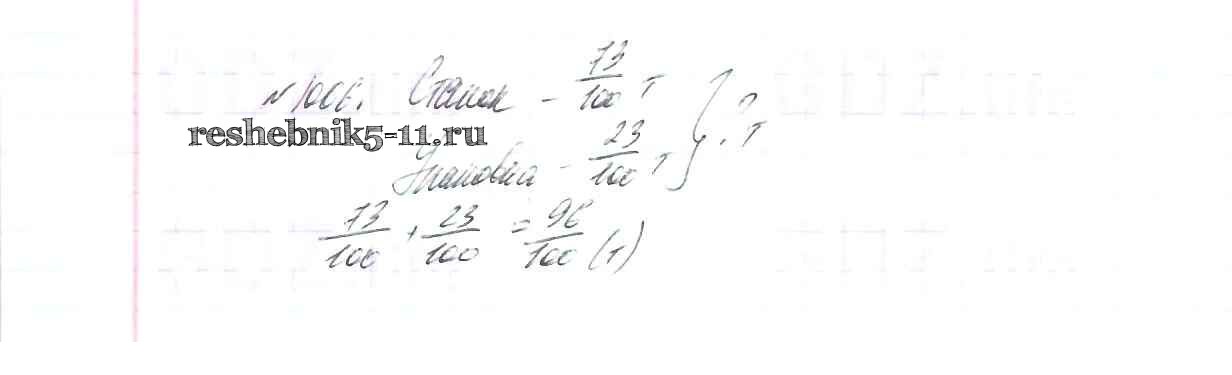 №1006. Станок - 73/100 т
reshebnik5-11.ru
Упаковка - 23/100 т } ? т
73/100 + 23/100 = 96/100 (т)